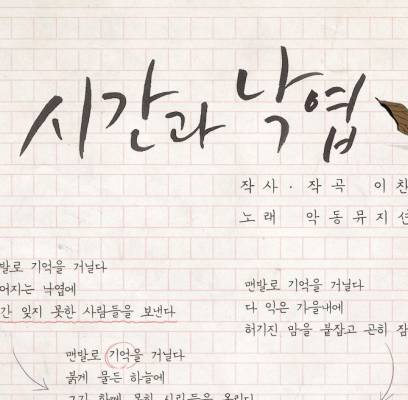 시간과 낙엽
작사 · 작곡 이찬
노래 악동뮤지션
맨발로 기억을 거닐다
맨발로 기억을 거닐다
다 익은 가을내에
허기진 맘을 붙잡고 곤히
잊지 못한 사람들을 보낸다
맨발로 기억을 거닐다
붉게 물든 하늘에